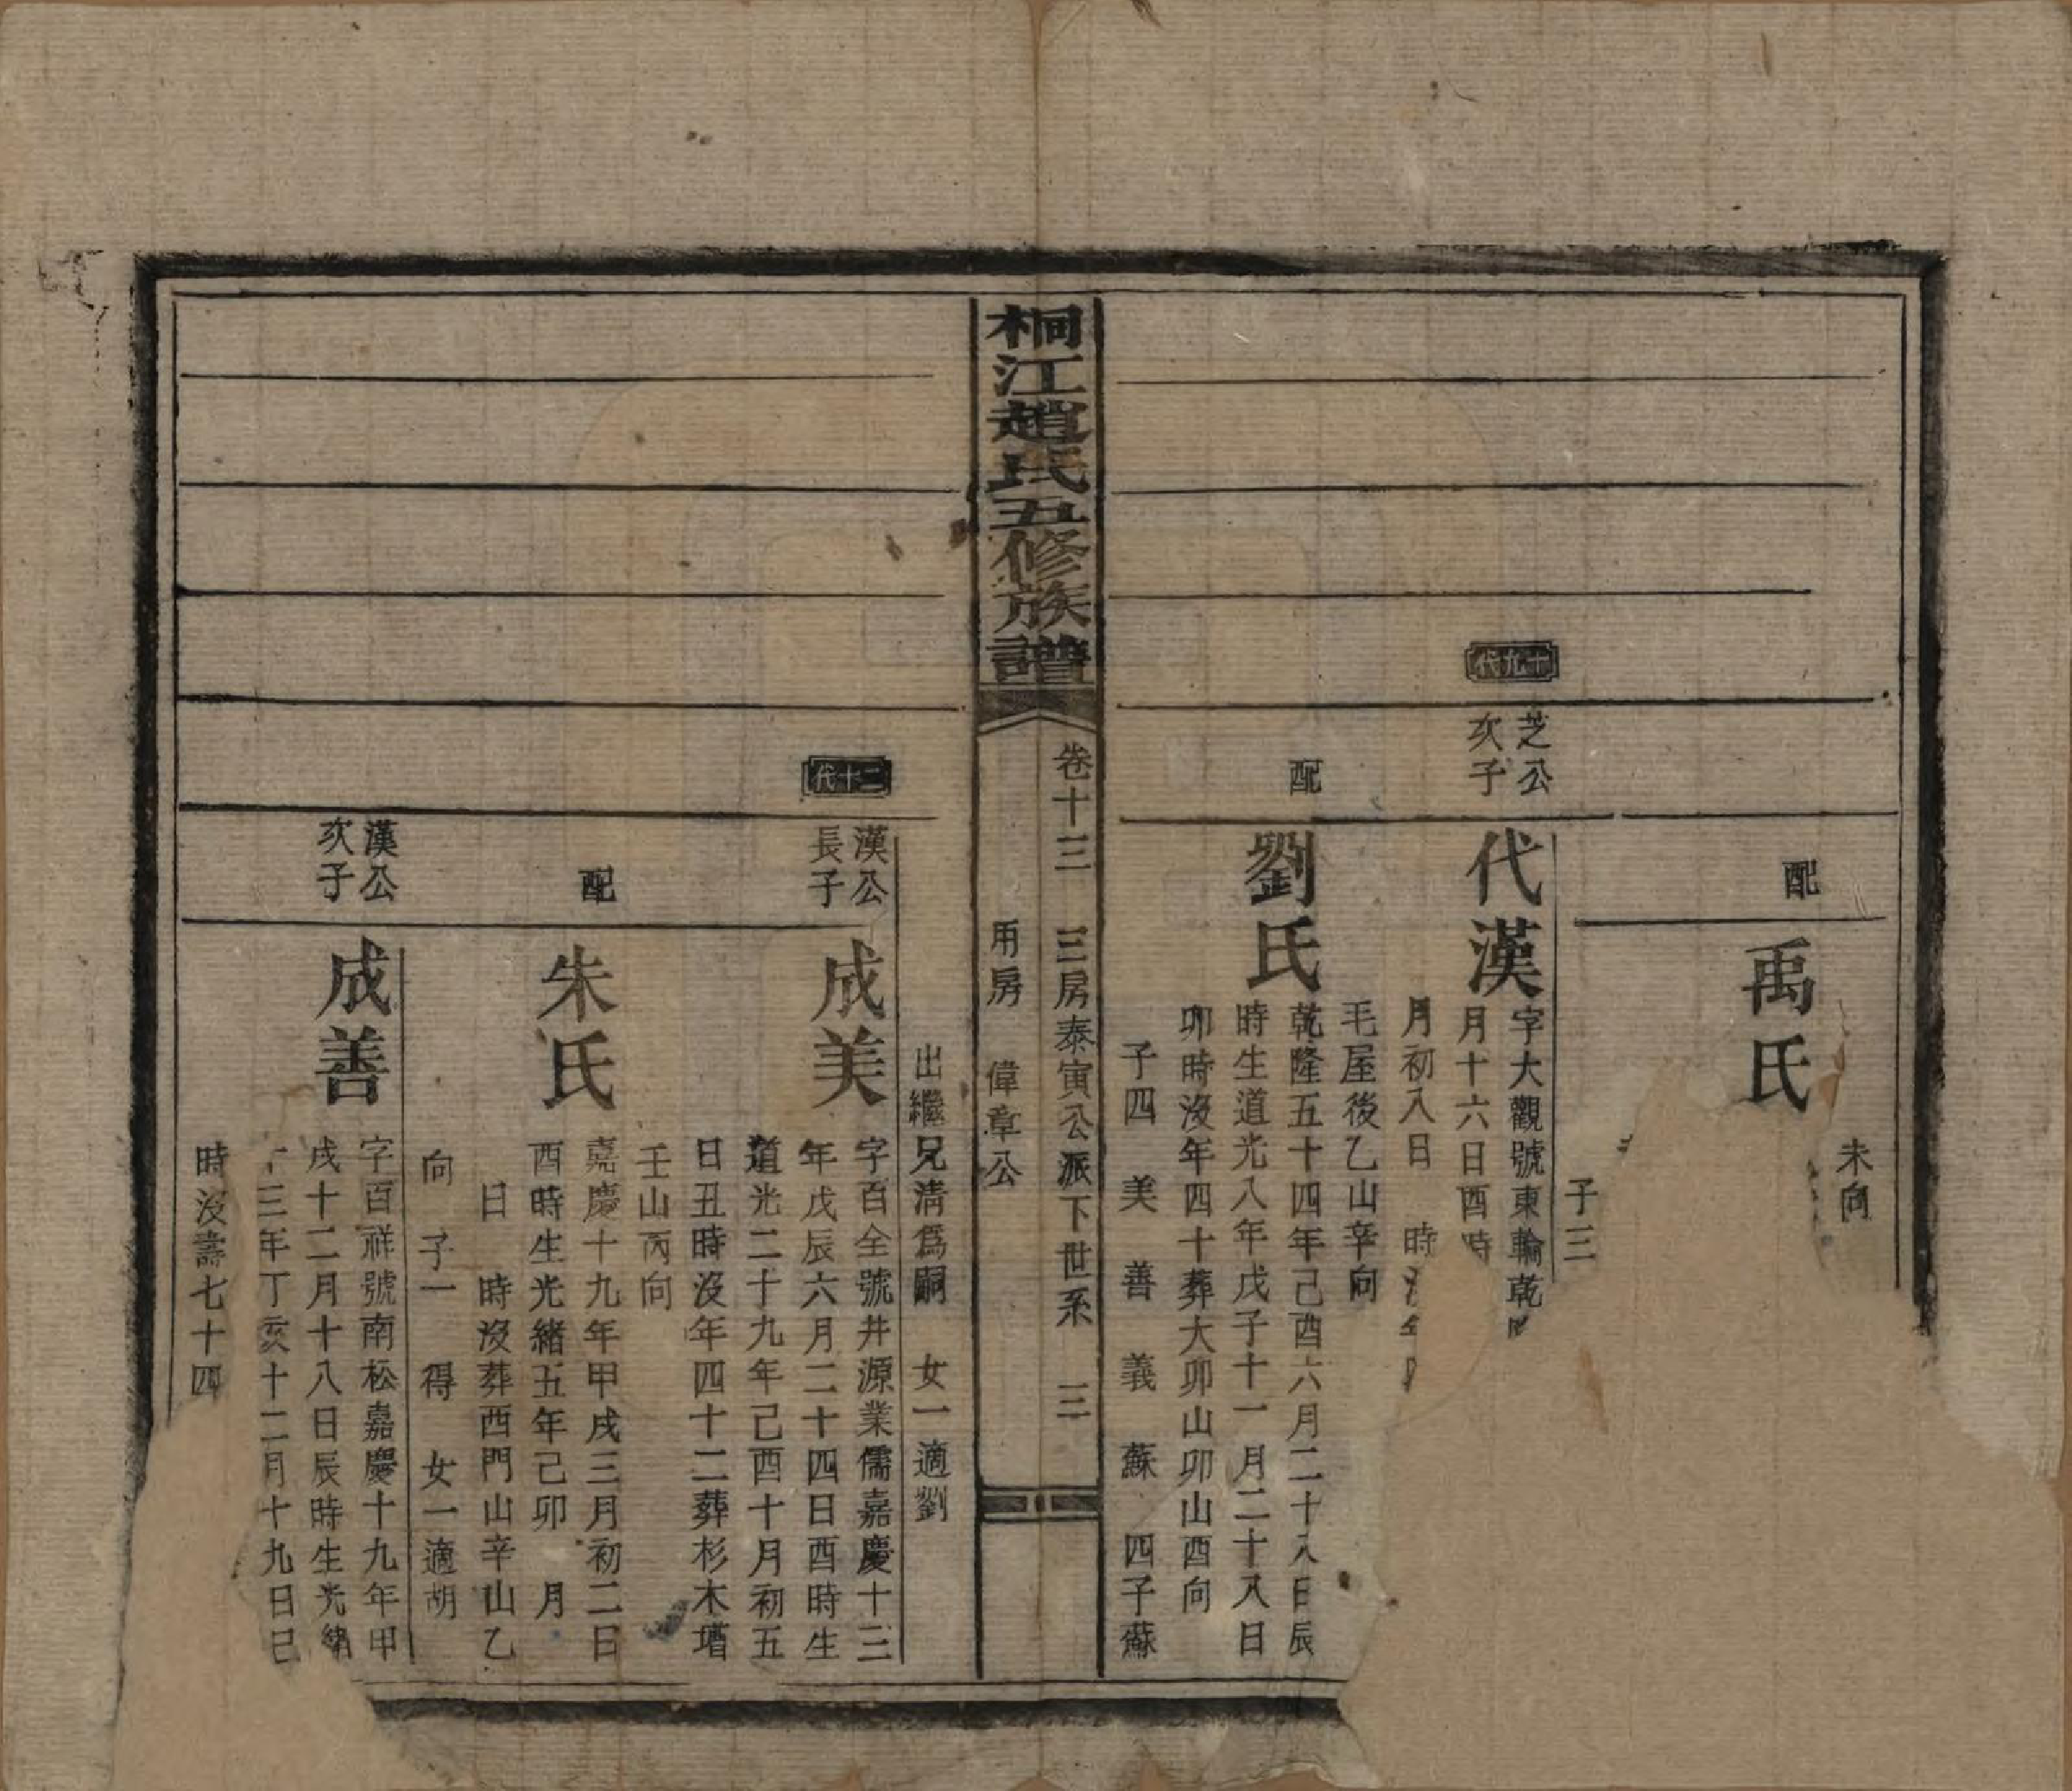 未向
配
禹氏
子三
十九代
芝公
次子
代漢
字大觀號東輪乾
月十六日酉時
月初八日　時
毛屋後乙山辛向
配
劉氏
乾隆五十四年己酉六月二十八日辰
時生道光八年戊子十一月二十八日
卯時沒年四十葬大卯山卯山酉向
子四　美　善　義　蘇　四子蘇
桐江趙氏五修族譜
卷十三　三房泰寅公派下世系　三
用房　偉章公
出繼兄清為嗣　女一適劉
二十代
漢公
長子
成美
字百全號井源業儒嘉慶十三
年戊辰六月二十四日酉時生
道光二十九年己酉十月初五
日丑時沒年四十二葬杉木壋
壬山丙向
配
朱氏
嘉慶十九年甲戌三月初二日
酉時生光緒五年己卯　月
日　時沒葬西門山辛山乙
向　子一　得　女一適胡
漢公
次子
成善
字百祥號南松嘉慶十九年甲
戌十二月十八日辰時生光緒
十三年丁亥十二月十九日巳
時沒壽七十四